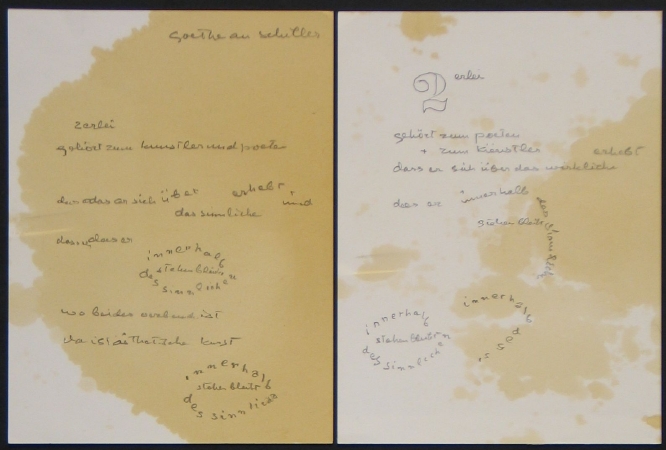 goethe an schiller
2erlei
gehört zum kunstler und poete
das er sich über erhebt und
das sinnliche
dass er
innerhalb
stehen bleibt
des sinnlichen
wo beides verbund ist
da ist ästhetische kunst
innerhalb
stehen bleibt
des sinnliche
2 erlei
gehört zum poeten
+ zum künstler erhebt
dass er sich über das wirkliche
dass er innerhalb
stehen bleibt
des sinnlich
innerhalb
stehen bleibt
des sinnliche
innerhalb
des si